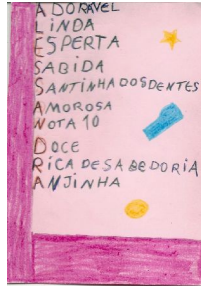 ADORAVEL
LINDA
ESPERTA
SABIDA
SANTINHA DOS DENTES
AMOROSA
NOTA 10
DOCE
RICA DE SABEDORIA
ANJINHA